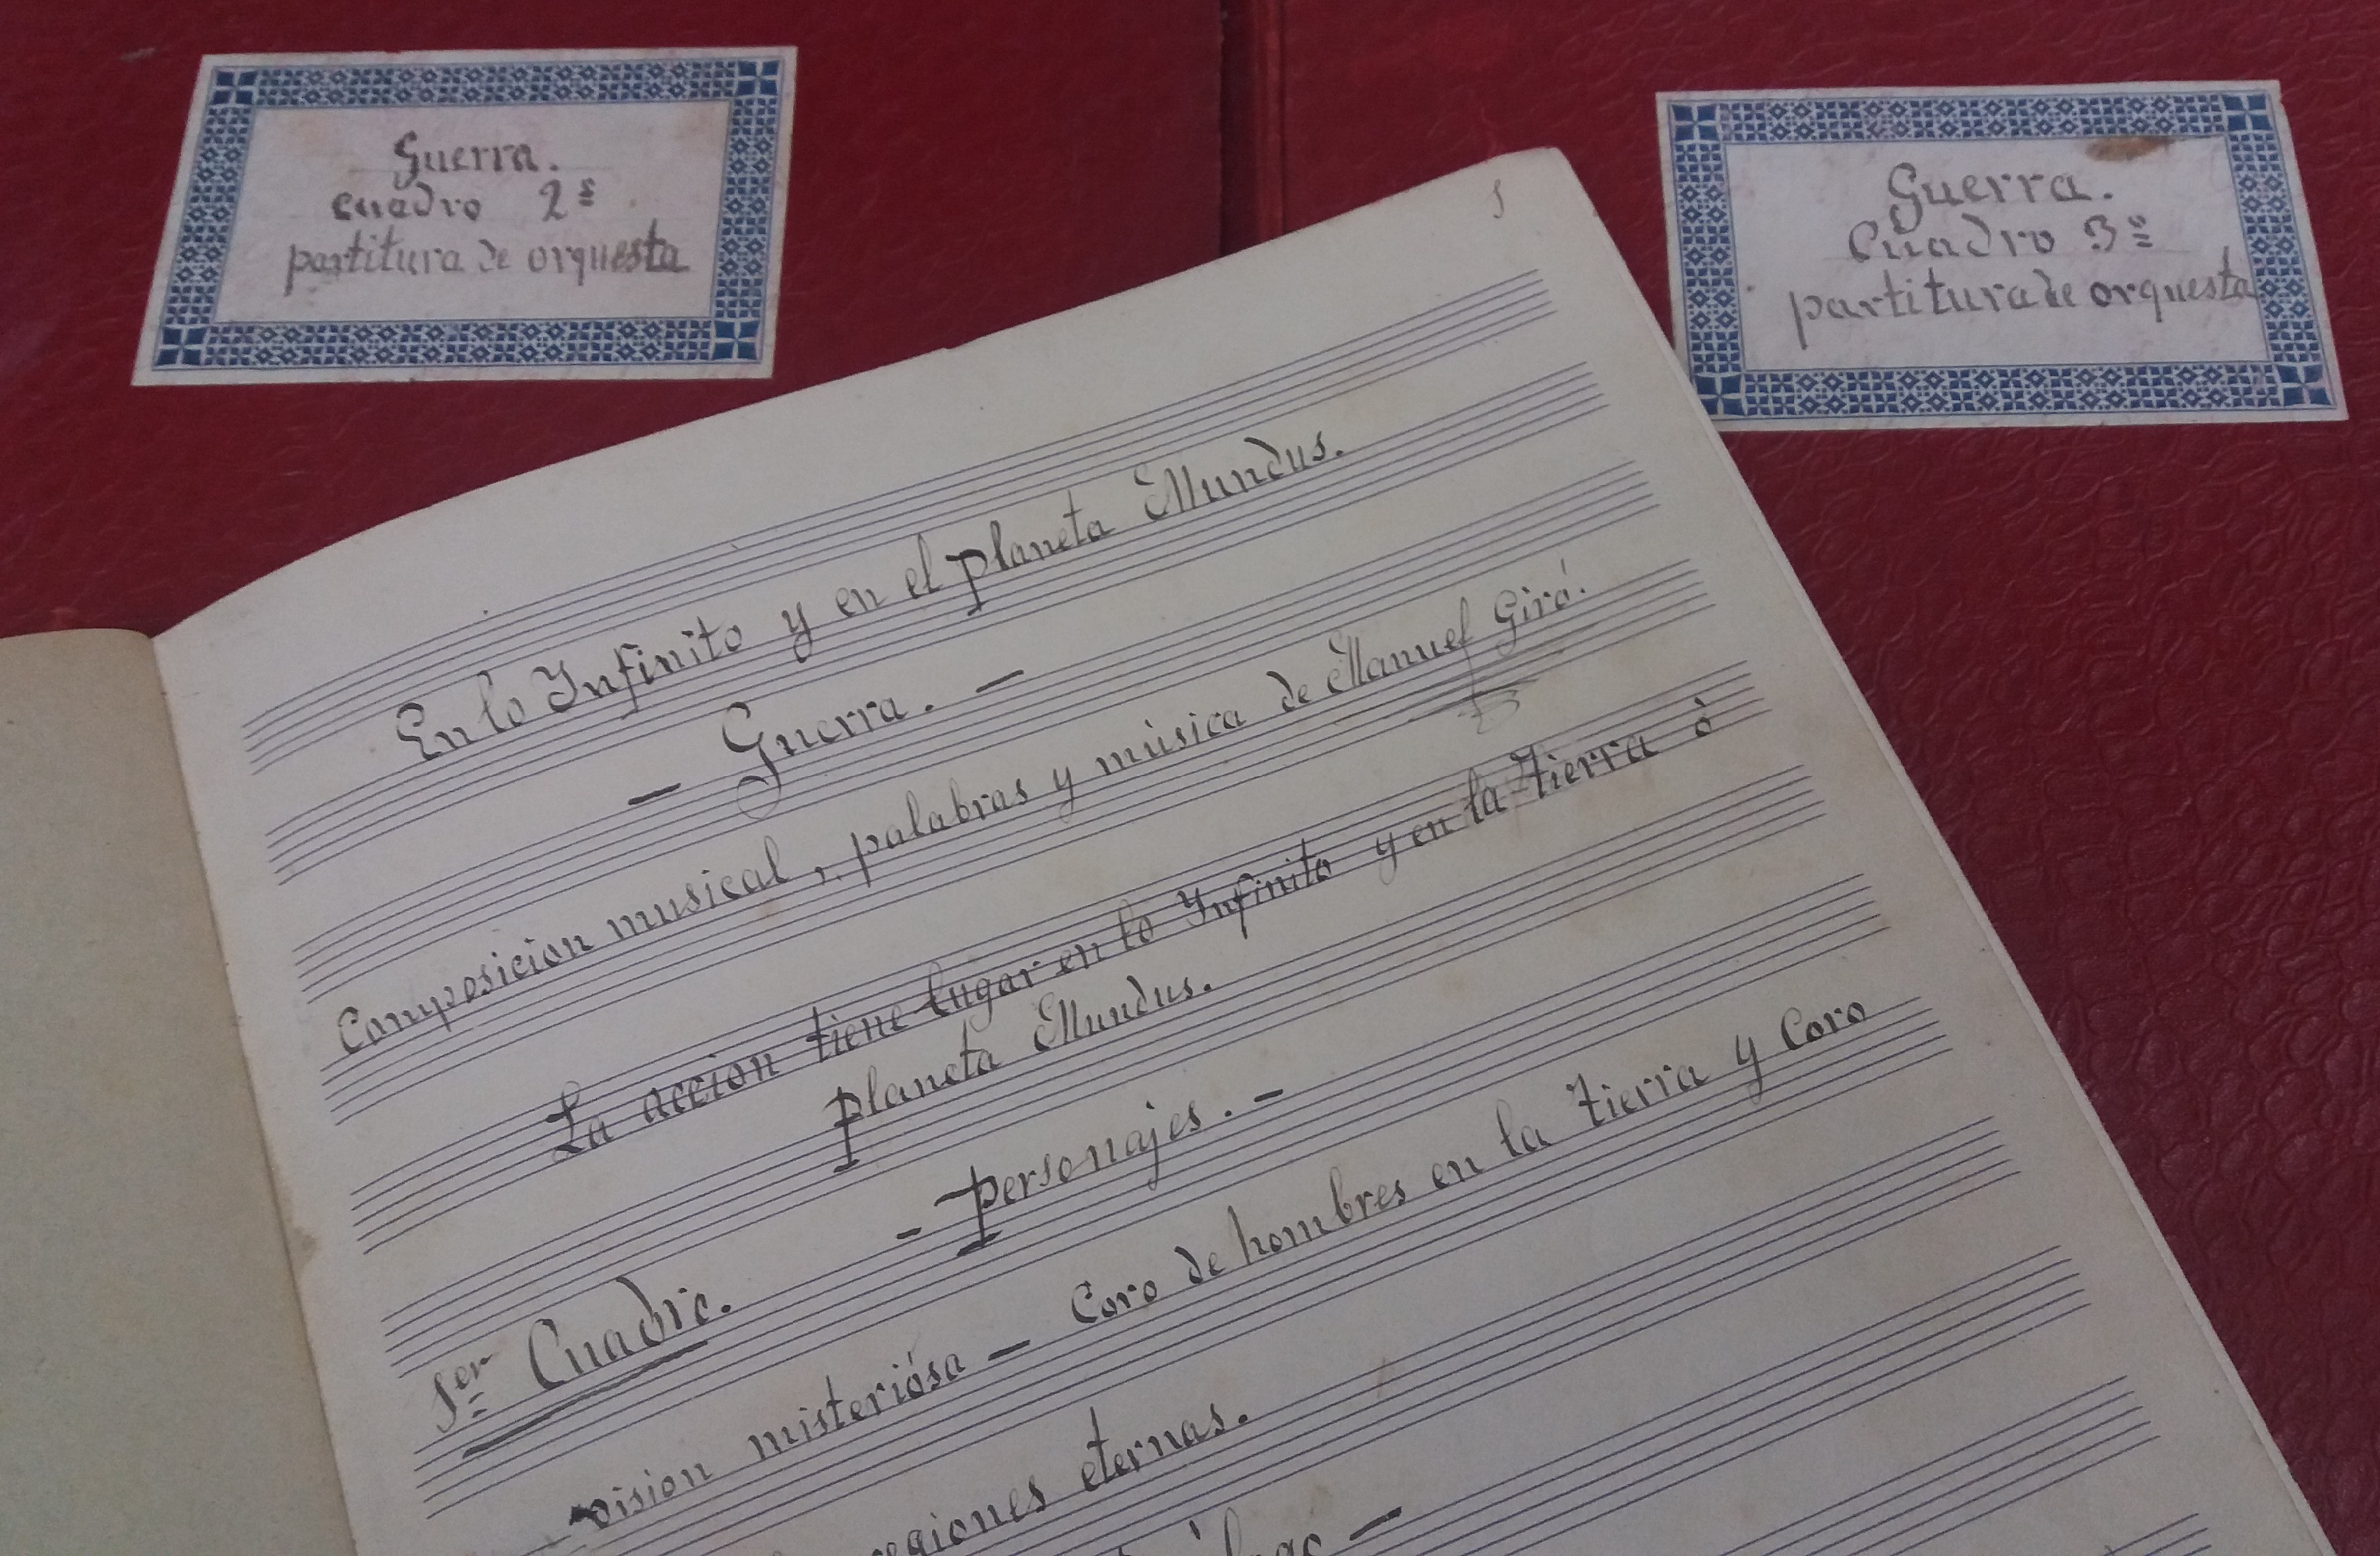 Guerra.
cuadro 2º
partitura de orquesta
Guerra.
Cuadro 3º
partitura de orquesta
1
En lo Infinito y en el planeta Mundus.
- Guerra. -
Composicion musical, palabras y música de Manuel Giró.
La accion tiene lugar en lo Infinito y en la Tierra ó
planeta Mundus.
- Personajes. -
1er Cuadro.
vision misteriósa - Coro de hombres en la Tierra y Coro
regiones eternas.